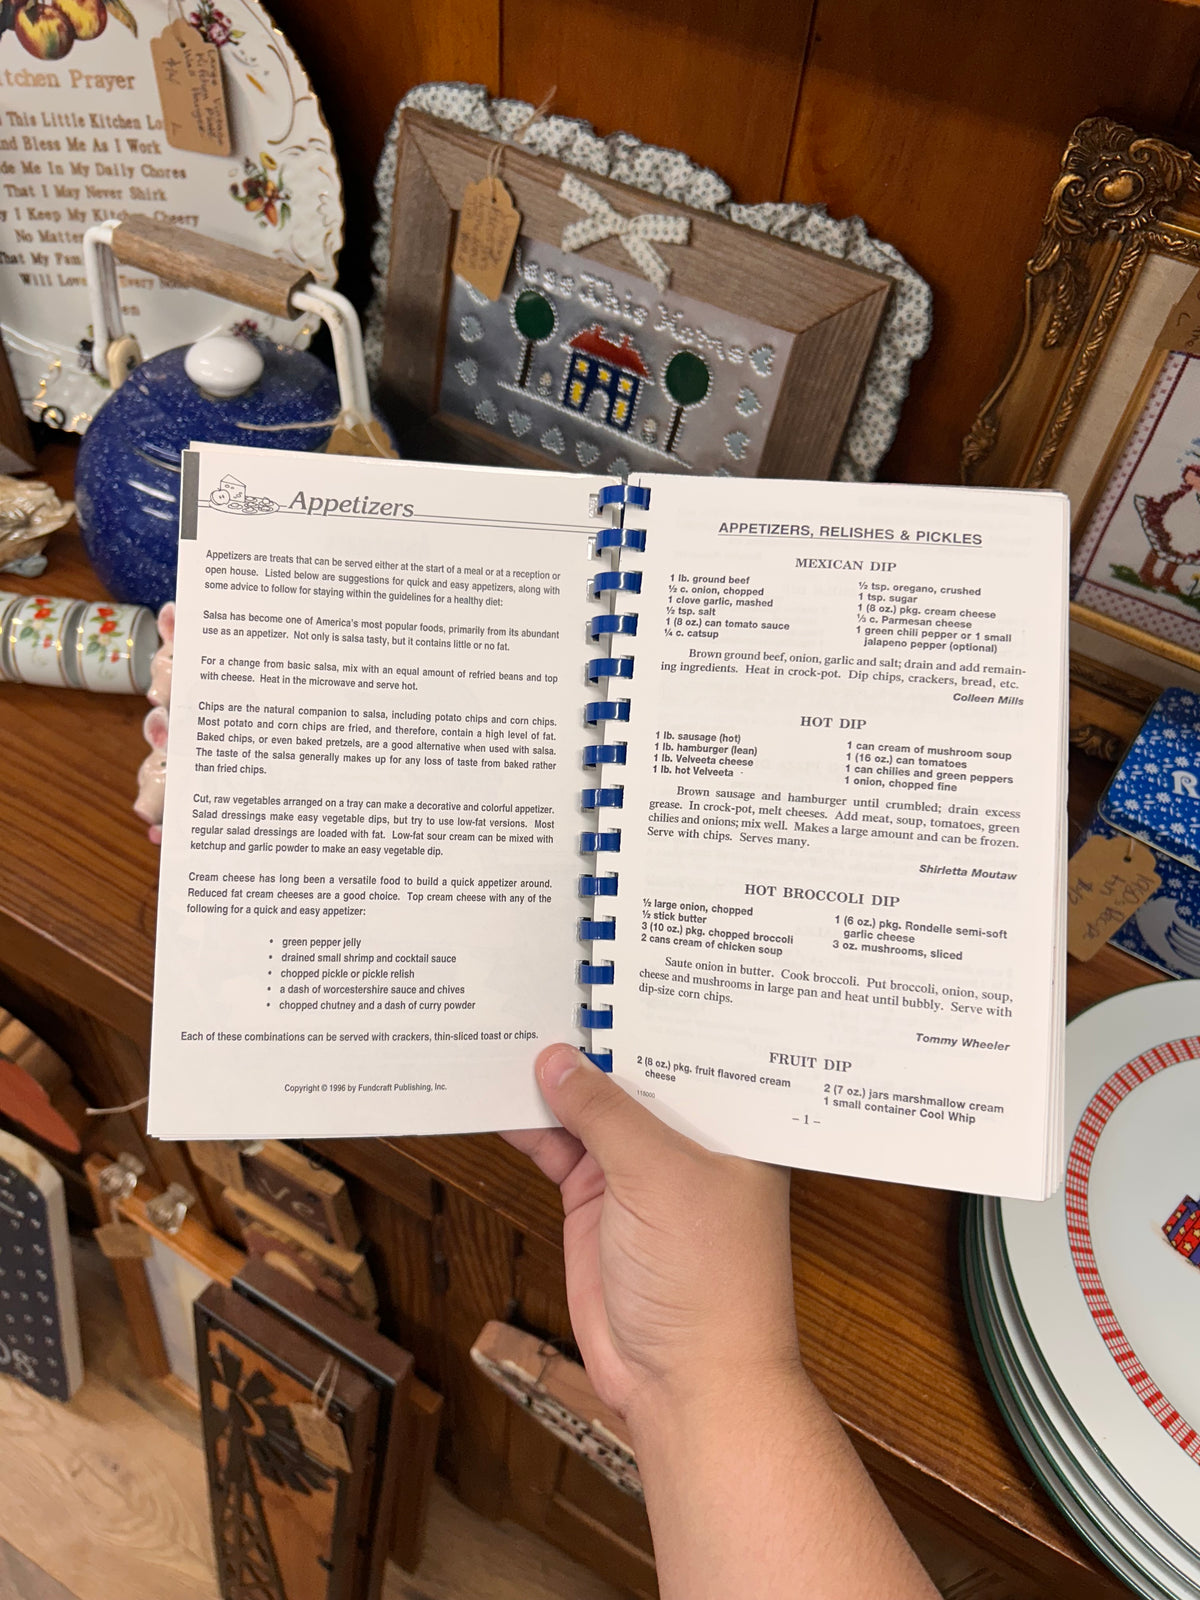 tchen Prayer
This Little Kitchen Lo
nd Bless Me As I Work
de Me In My Daily Chores
That I May Never Shirk
y I Keep My Kitchen Cheery
No Matter
That My Fam
Will Love Every
en
Large Vintage
Bless This Home
Appetizers
Appetizers are treats that can be served either at the start of a meal or at a reception or
open house. Listed below are suggestions for quick and easy appetizers, along with
some advice to follow for staying within the guidelines for a healthy diet:
Salsa has become one of America's most popular foods, primarily from its abundant
use as an appetizer. Not only is salsa tasty, but it contains little or no fat.
For a change from basic salsa, mix with an equal amount of refried beans and top
with cheese. Heat in the microwave and serve hot.
Chips are the natural companion to salsa, including potato chips and corn chips.
Most potato and corn chips are fried, and therefore, contain a high level of fat.
Baked chips, or even baked pretzels, are a good alternative when used with salsa.
The taste of the salsa generally makes up for any loss of taste from baked rather
than fried chips.
Cut, raw vegetables arranged on a tray can make a decorative and colorful appetizer.
Salad dressings make easy vegetable dips, but try to use low-fat versions. Most
regular salad dressings are loaded with fat. Low-fat sour cream can be mixed with
ketchup and garlic powder to make an easy vegetable dip.
Cream cheese has long been a versatile food to build a quick appetizer around.
Reduced fat cream cheeses are a good choice. Top cream cheese with any of the
following for a quick and easy appetizer:
• green pepper jelly
• drained small shrimp and cocktail sauce
• chopped pickle or pickle relish
• a dash of worcestershire sauce and chives
• chopped chutney and a dash of curry powder
Each of these combinations can be served with crackers, thin-sliced toast or chips.
Copyright © 1996 by Fundcraft Publishing, Inc.
APPETIZERS, RELISHES & PICKLES
MEXICAN DIP
1 lb. ground beef
½ c. onion, chopped
1 clove garlic, mashed
½ tsp. salt
1 (8 oz.) can tomato sauce
¼ c. catsup
½ tsp. oregano, crushed
1 tsp. sugar
1 (8 oz.) pkg. cream cheese
⅓ c. Parmesan cheese
1 green chili pepper or 1 small
jalapeno pepper (optional)
Brown ground beef, onion, garlic and salt; drain and add remain-
ing ingredients. Heat in crock-pot. Dip chips, crackers, bread, etc.
Colleen Mills
HOT DIP
1 lb. sausage (hot)
1 lb. hamburger (lean)
1 lb. Velveeta cheese
1 lb. hot Velveeta
1 can cream of mushroom soup
1 (16 oz.) can tomatoes
1 can chilies and green peppers
1 onion, chopped fine
Brown sausage and hamburger until crumbled; drain excess
grease. In crock-pot, melt cheeses. Add meat, soup, tomatoes, green
chilies and onions; mix well. Makes a large amount and can be frozen.
Serve with chips. Serves many.
Shirletta Moutaw
HOT BROCCOLI DIP
½ large onion, chopped
½ stick butter
3 (10 oz.) pkg. chopped broccoli
2 cans cream of chicken soup
1 (6 oz.) pkg. Rondelle semi-soft
garlic cheese
3 oz. mushrooms, sliced
Saute onion in butter. Cook broccoli. Put broccoli, onion, soup,
cheese and mushrooms in large pan and heat until bubbly. Serve with
dip-size corn chips.
Tommy Wheeler
FRUIT DIP
2 (8 oz.) pkg. fruit flavored cream
cheese
2 (7 oz.) jars marshmallow cream
1 small container Cool Whip
118000
– 1 –
R